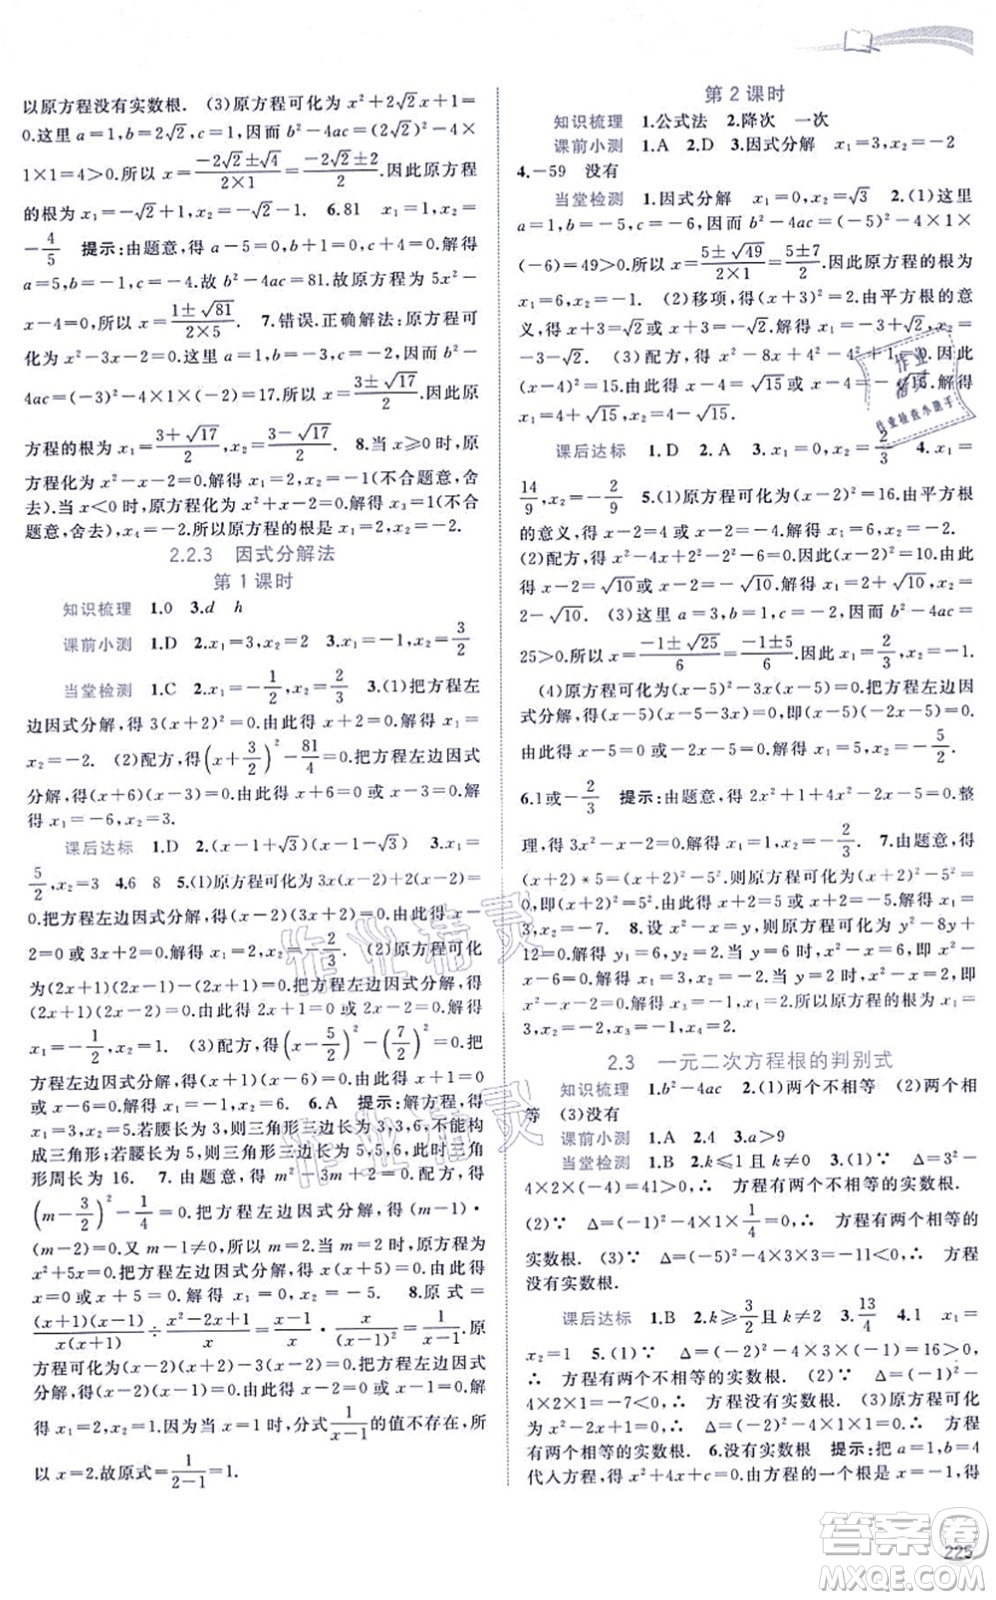 以原方程没有实数根. (3)原方程可化为 x²+2√2x+1=
0.这里 a=1,b=2√2,c=1,因而 b²-4ac=(2√2)²-4×
1×1=4>0.所以 x=(-2√2±√4)/(2×1)=(-2√2±2)/2.因此原方程
的根为 x₁=-√2+1,x₂=-√2-1. 6.81 x₁=1,x₂=
-4/5 提示:由题意,得 a-5=0,b+1=0,c+4=0.解得
a=5,b=-1,c=-4.故 b²-4ac=81.故原方程为 5x²-
x-4=0,所以 x=(1±√81)/(2×5) 7.错误.正确解法:原方程可
化为 x²-3x-2=0.这里 a=1,b=-3,c=-2.因而 b²-
4ac=(-3)²-4×1×(-2)=17.所以 x=(3±√17)/2.因此原
方程的根为 x₁=(3+√17)/2,x₂=(3-√17)/2. 8.当 x≥0 时,原
方程化为 x²-x-2=0.解得 x₁=2,x₂=-1(不合题意,舍
去).当 x<0 时,原方程化为 x²+x-2=0.解得 x₃=1(不合
题意,舍去),x₄=-2.所以原方程的根是 x₁=2,x₂=-2.
2.2.3 因式分解法
第 1 课时
知识梳理 1.0 3.d h
课前小测 1.D 2.x₁=3,x₂=2 3.x₁=-1,x₂=3/2
当堂检测 1.C 2.x₁=-1/2,x₂=2/3 3.(1)把方程左
边因式分解,得 3(x+2)²=0.由此得 x+2=0.解得 x₁=
x₂=-2. (2)配方,得(x+3/2)²-81/4=0.把方程左边因式
分解,得(x+6)(x-3)=0.由此得 x+6=0 或 x-3=0.解
得 x₁=-6,x₂=3.
课后达标 1.D 2.(x-1+√3)(x-1-√3) 3.x₁=
5/2,x₂=3 4.6 8 5.(1)原方程可化为 3x(x-2)+2(x-2)
=0.把方程左边因式分解,得(x-2)(3x+2)=0.由此得 x-
2=0 或 3x+2=0.解得 x₁=2,x₂=-2/3. (2)原方程可化
为(2x+1)(2x-1)-(2x+1)=0.把方程左边因式分解,得
(2x+1)(2x-2)=0.由此得 2x+1=0 或 2x-2=0.解得
x₁=-1/2,x₂=1. (3)配方,得(x-5/2)²-(7/2)²=0.把方程
左边因式分解,得(x-6)(x+1)=0.由此得 x-6=0 或 x+
1=0.解得 x₁=6,x₂=-1. 6.A 提示:解方程,得 x₁=5,
x₂=3,x₃=5.若腰长为 3,则三角形边长为 3,3,6,不能构成
三角形;若腰长为 5,则三角形边长为 5,5,6,能构成三角
形周长为 16. 7.由题意,得 m²-3m+2=0.配方,得
(m-3/2)²-1/4=0.把方程左边因式分解,得(m-1)·
(m-2)=0.又 m-1≠0,所以 m=2.当 m=2 时,原方程为
x²+5x=0.把方程左边因式分解,得 x(x+5)=0.由此得
x=0 或 x+5=0.解得 x₁=0,x₂=-5. 8.原式=
(x+1)(x-1)/(x(x+1))÷(x²-2x+1)/x=(x-1)/x·x/(x-1)²=1/(x-1).原
方程可化为 x(x-1)-2(x-1)=0.把方程左边因式分
解,得(x-1)(x-2)=0.由此得 x-1=0 或 x-2=0.解得
x₁=1,x₂=2.因为当 x=1 时,分式1/(x-1)的值不存在,所
以 x=2.故原式=1/(2-1)=1.
第 2 课时
知识梳理 1.公式法 2.降次 一次
课前小测 1.A 2.D 3.因式分解 x₁=3,x₂=-2
4.-59 没有
当堂检测 1.因式分解 x₁=3,x₂=2 2.(1)这里
a=1,b=-5,c=-6,因而 b²-4ac=(-5)²-4×1×
(-6)=49>0.所以 x=(5±√49)/(2×1)=(5±7)/2.因此原方程的根为
x₁=6,x₂=-1. (2)移项,得(x+3)²=2.由平方根的意
义,得 x+3=√2 或 x+3=-√2.解得 x₁=-3+√2,x₂=
-3-√2. (3)配方,得 x²-8x+4²-4²+1=0.因此
(x-4)²=15.由此得 x-4=√15 或 x-4=-√15.解得
x₁=4+√15,x₂=4-√15.
课后达标 1.D 2.A 3.x₁=0,x₂=2/3 4.x₁=
14/9,x₂=-2/9 5.(1)原方程可化为(x-2)²=16.由平方根
的意义,得 x-2=4 或 x-2=-4.解得 x₁=6,x₂=-2.
(2)配方,得 x²-4x+2²-2²-6=0.因此(x-2)²=10.由
此得 x-2=√10 或 x-2=-√10.解得 x₁=2+√10,x₂=
2-√10. (3)这里 a=3,b=1,c=-2.因而 b²-4ac=
25>0.所以 x=(-1±√25)/6=(-1±5)/6.因此 x₁=2/3,x₂=-1.
(4)原方程可化为(x-5)²-3x(x-5)=0.把方程左边因
式分解,得(x-5)(x-5-3x)=0,即(x-5)(-2x-5)=0.
由此得 x-5=0 或-2x-5=0.解得 x₁=5,x₂=-5/2.
6.1或-2/3 提示:由题意,得 2x²+1+4x²-2x-5=0.整
理,得 3x²-x-2=0.解得 x₁=1,x₂=-2/3. 7.由题意,得
(x+2)*5=(x+2)²-5².则原方程可化为(x+2)²-5²=
0,即(x+7)(x-3)=0.由此得 x+7=0 或 x-3=0.解得
x₁=-7,x₂=3. 8.设 x²-x=y,则原方程可化为 y²-8y+
12=0.解得 y₁=6,y₂=2.当 y=6 时,即 x²-x=6,也即
x²-x-6=0.解得 x₁=3,x₂=-2;当 y=2 时,即 x²-x=2,也即
x²-x-2=0.解得 x₃=-1,x₄=2.所以原方程的根为 x₁=
3,x₂=-2,x₃=-1,x₄=2.
2.3 一元二次方程根的判别式
知识梳理 1.b²-4ac 2.(1)两个不相等 (2)两个相
等 (3)没有
课前小测 1.A 2.4 3.a>9
当堂检测 1.B 2.k≤1且 k≠0 3.(1)∵ Δ=3²-
4×2×(-4)=41>0,∴ 方程有两个不相等的实数根.
(2)∵ Δ=(-1)²-4×1×1/4=0,∴ 方程有两个相等的
实数根. (3)∵ Δ=(-5)²-4×3×3=-11<0,∴ 方程
没有实数根.
课后达标 1.B 2.k≥3/2 3.13/4 4.1 x₁=
x₂=1 5.(1)∵ Δ=(-2)²-4×1×(-3)=16>0,
∴ 方程有两个不相等的实数根. (2)∵ Δ=(-2)²-
4×2×1=-4<0,∴ 方程没有实数根. (3)原方程可化
为 x²-2x+1=0.∵ Δ=(-2)²-4×1×1=0,∴ 方程
有两个相等的实数根. 6.没有实数根 提示:把 a=1,b=4
代入方程,得 x²+4x+c=0.由方程的一个根是 x=-1,得
225
答案圈
MXQE.COM
作业精灵
作业精灵
作业
精灵
作业检查小能手